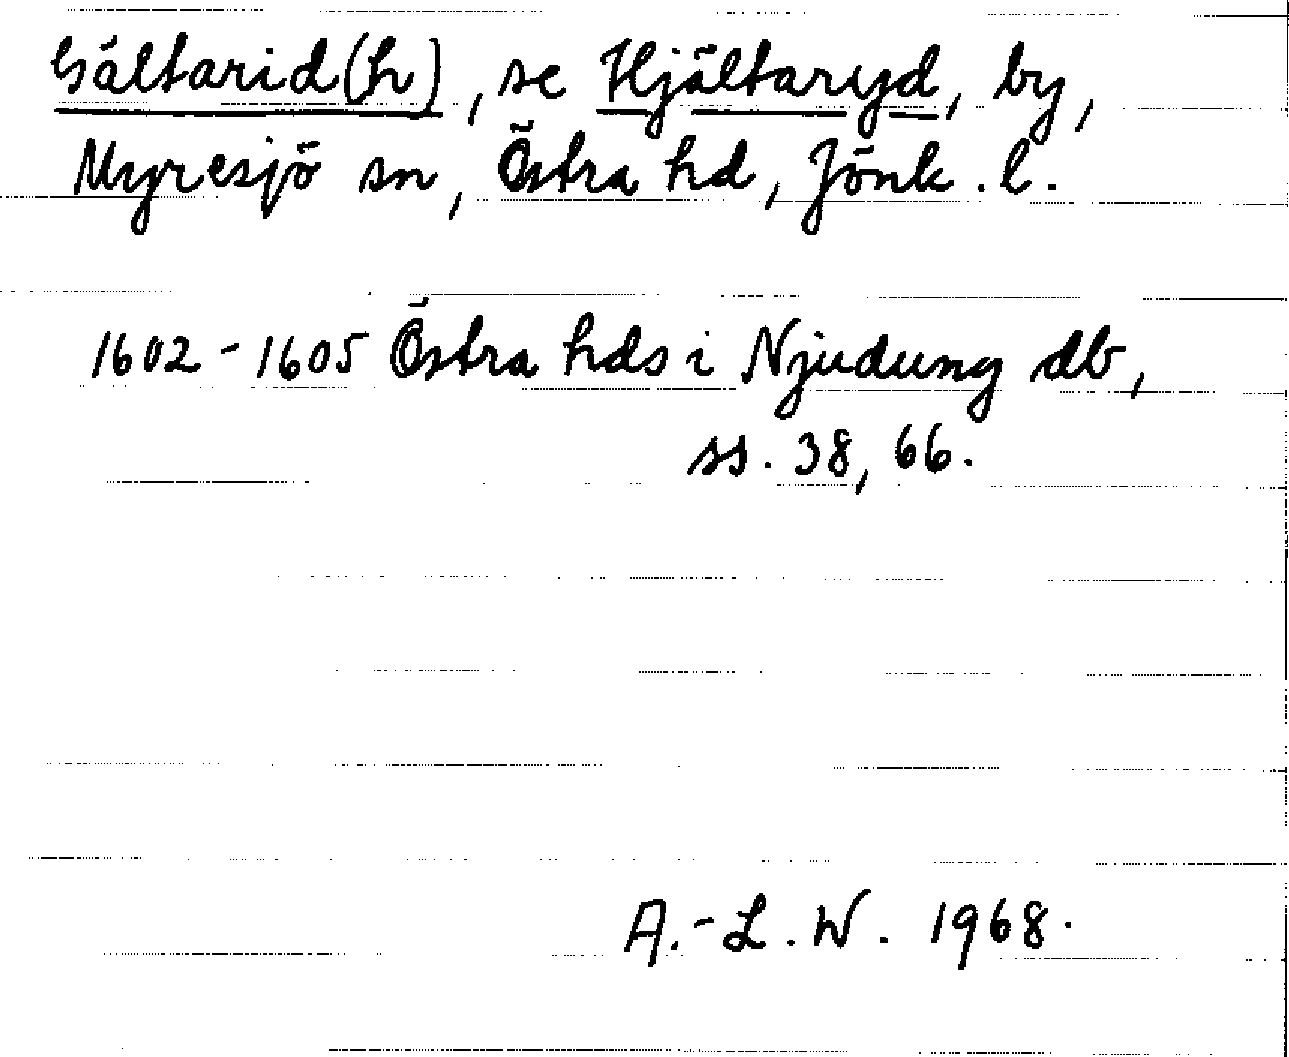 Gältarid(h), se Hjältaryd, by,
Myresjö sn, Östra hd, Jönk. l.
1602-1605 Östra hds i Njudung db,
ss. 38, 66.
A.-L. W. 1968.